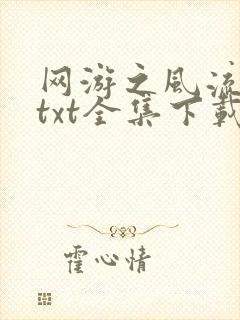 网游之风流
txt全集下载
霍心情